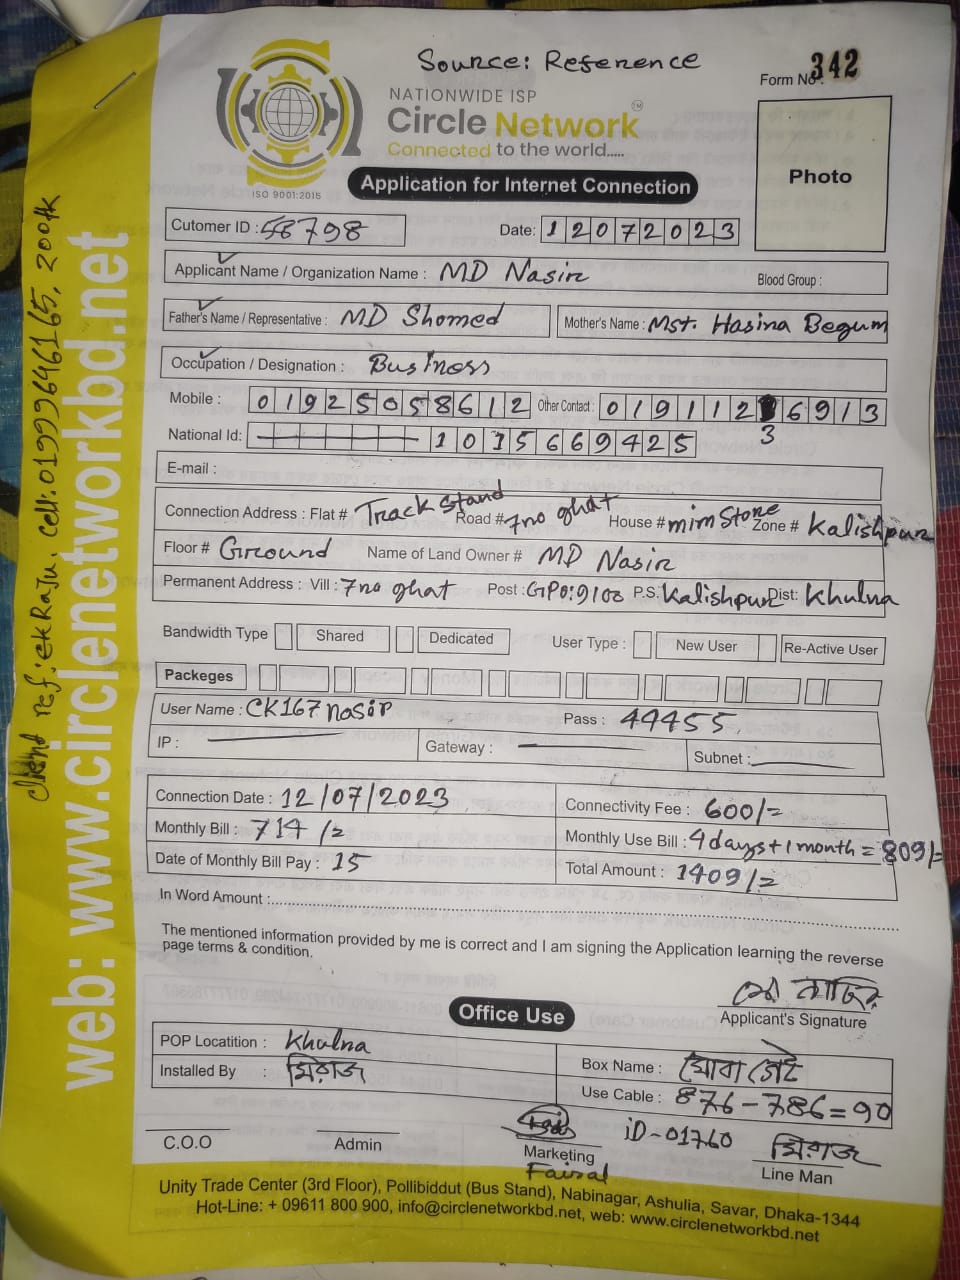 Source: Reference
Form No: 342
NATIONWIDE ISP
Circle Network™
Connected to the world.....
ISO 9001:2015
Application for Internet Connection
Photo
Cutomer ID : 58798
Date: 12072023
Applicant Name / Organization Name : MD Nasir
Blood Group :
Father's Name / Representative : MD Shomed
Mother's Name : Mst. Hasina Begum
Occupation / Designation : Business
Mobile : 01925058612 Other Contact : 01911236913
National Id: 1015669425
E-mail :
Connection Address : Flat # Track Stand Road # 7no ghat House # mim Store Zone # Kalishpur
Floor # Ground Name of Land Owner # MD Nasir
Permanent Address : Vill : 7no ghat Post : GPO:9100 P.S: Kalishpur Dist: Khulna
Bandwidth Type Shared Dedicated User Type : New User Re-Active User
Packeges
User Name : CK167nosir Pass : 44455
IP : — Gateway : — Subnet : —
Connection Date : 12/07/2023
Connectivity Fee : 600/=
Monthly Bill : 714/=
Monthly Use Bill : 4days+1month = 809/=
Date of Monthly Bill Pay : 15
Total Amount : 1409/=
In Word Amount :
The mentioned information provided by me is correct and I am signing the Application learning the reverse
page terms & condition.
মো নাছির
Applicant's Signature
Office Use
POP Locatition : Khulna
Installed By : মিরাজ
Box Name :
Use Cable : 876-786=90
C.O.O
Admin
Marketing
Faisal
iD-01760
মিরাজ
Line Man
Unity Trade Center (3rd Floor), Pollibiddut (Bus Stand), Nabinagar, Ashulia, Savar, Dhaka-1344
Hot-Line: + 09611 800 900, info@circlenetworkbd.net, web: www.circlenetworkbd.net
web: www.circlenetworkbd.net
Cliend ref: Raju. cell: 01999646165, 200tk